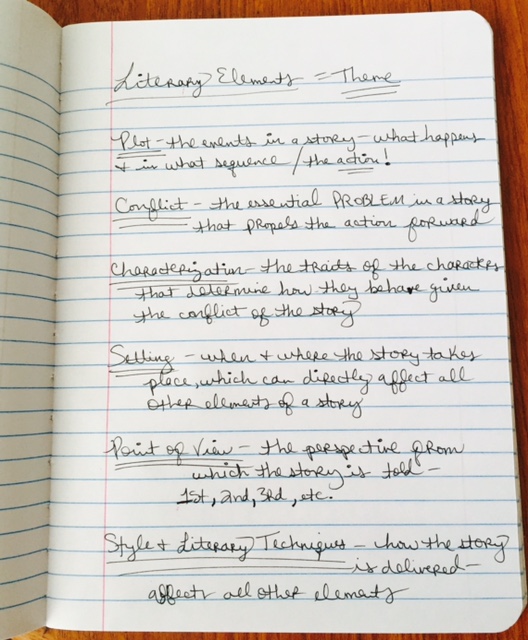 Literary Elements = Theme
Plot - the events in a story - what happens
+ in what sequence / the action!
Conflict - the essential PROBLEM in a story
that propels the action forward
Characterization - the traits of the characters
that determine how they behave given
the conflict of the story
Setting - when + where the story takes
place, which can directly affect all
other elements of a story
Point of View - the perspective from
which the story is told -
1st, 2nd, 3rd, etc.
Style + Literary Techniques - how the story
is delivered -
affects all other elements